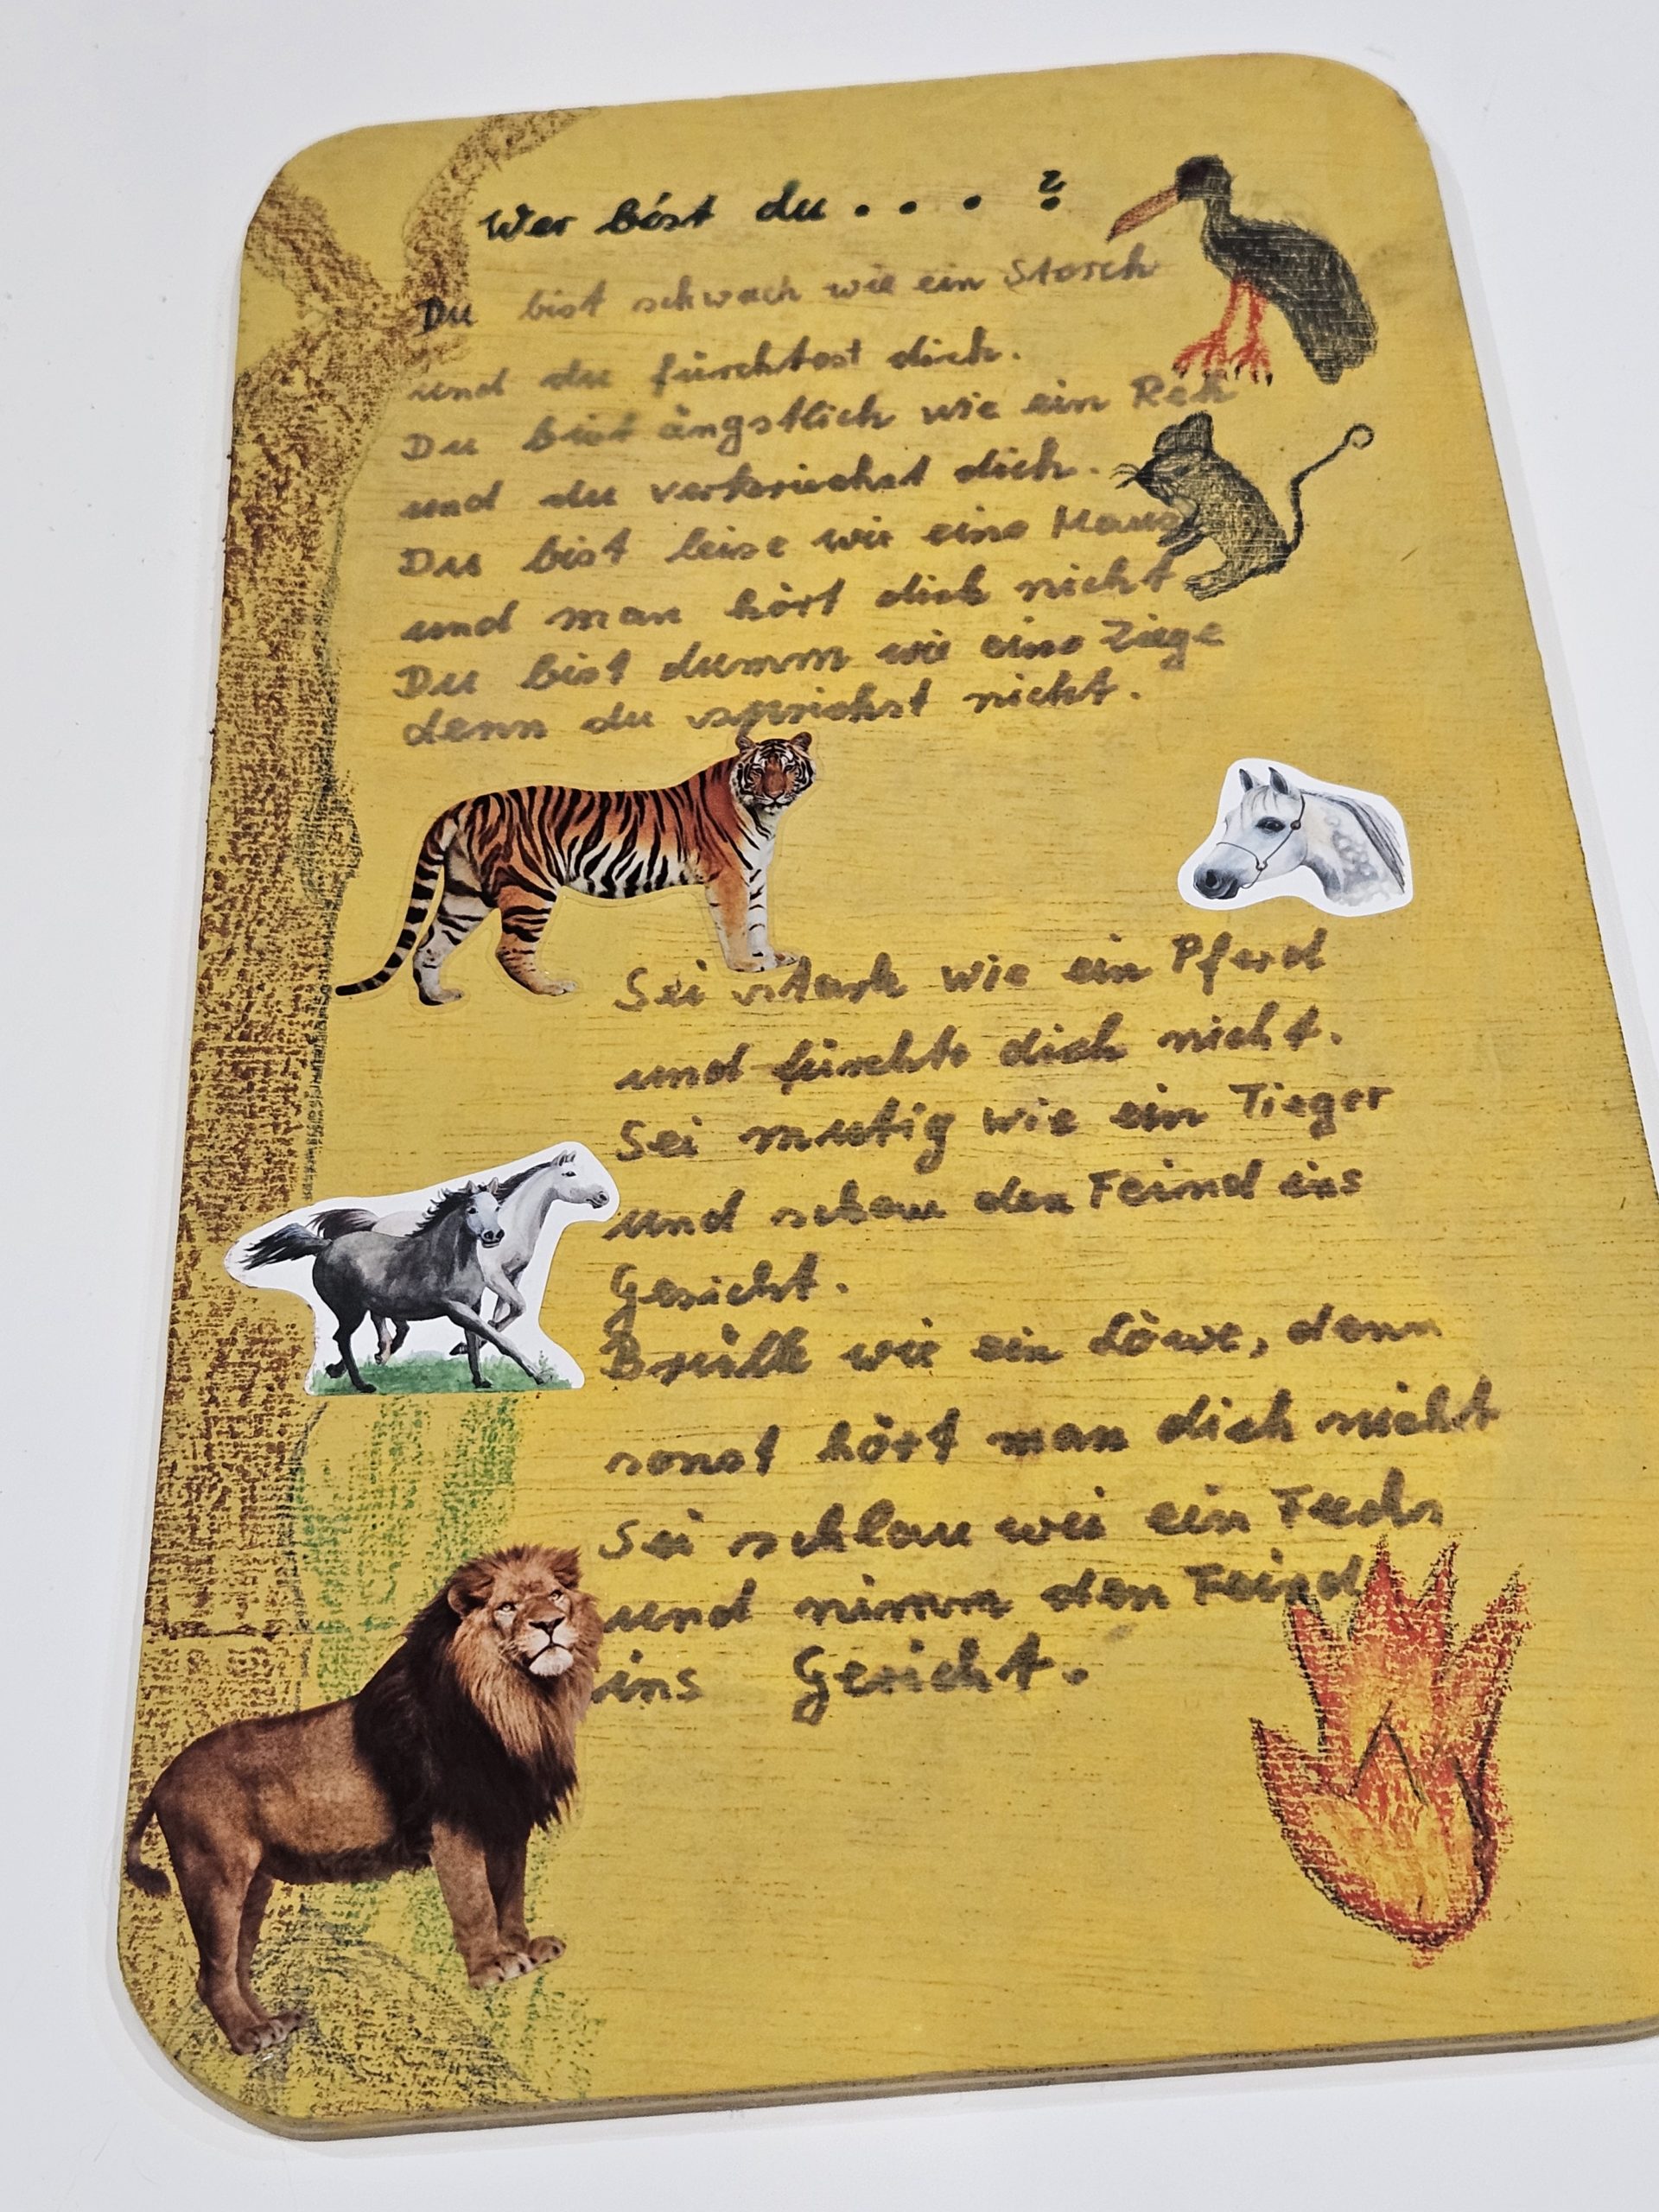 Wer bist du . . . . ?
Du bist schwach wie ein Storch
und du fürchtest dich.
Du bist ängstlich wie ein Reh
und du verkriechst dich.
Du bist leise wie eine Maus
und man hört dich nicht
Du bist dumm wie eine Ziege
denn du sprichst nicht.
Sei stark wie ein Pferd
und fürchte dich nicht.
Sei mutig wie ein Tieger
und schau den Feind ins
Gesicht.
Brülle wie ein Löwe, denn
sonst hört man dich nicht
Sei schlau wie ein Fuchs
und nimm den Feind
ins Gericht.